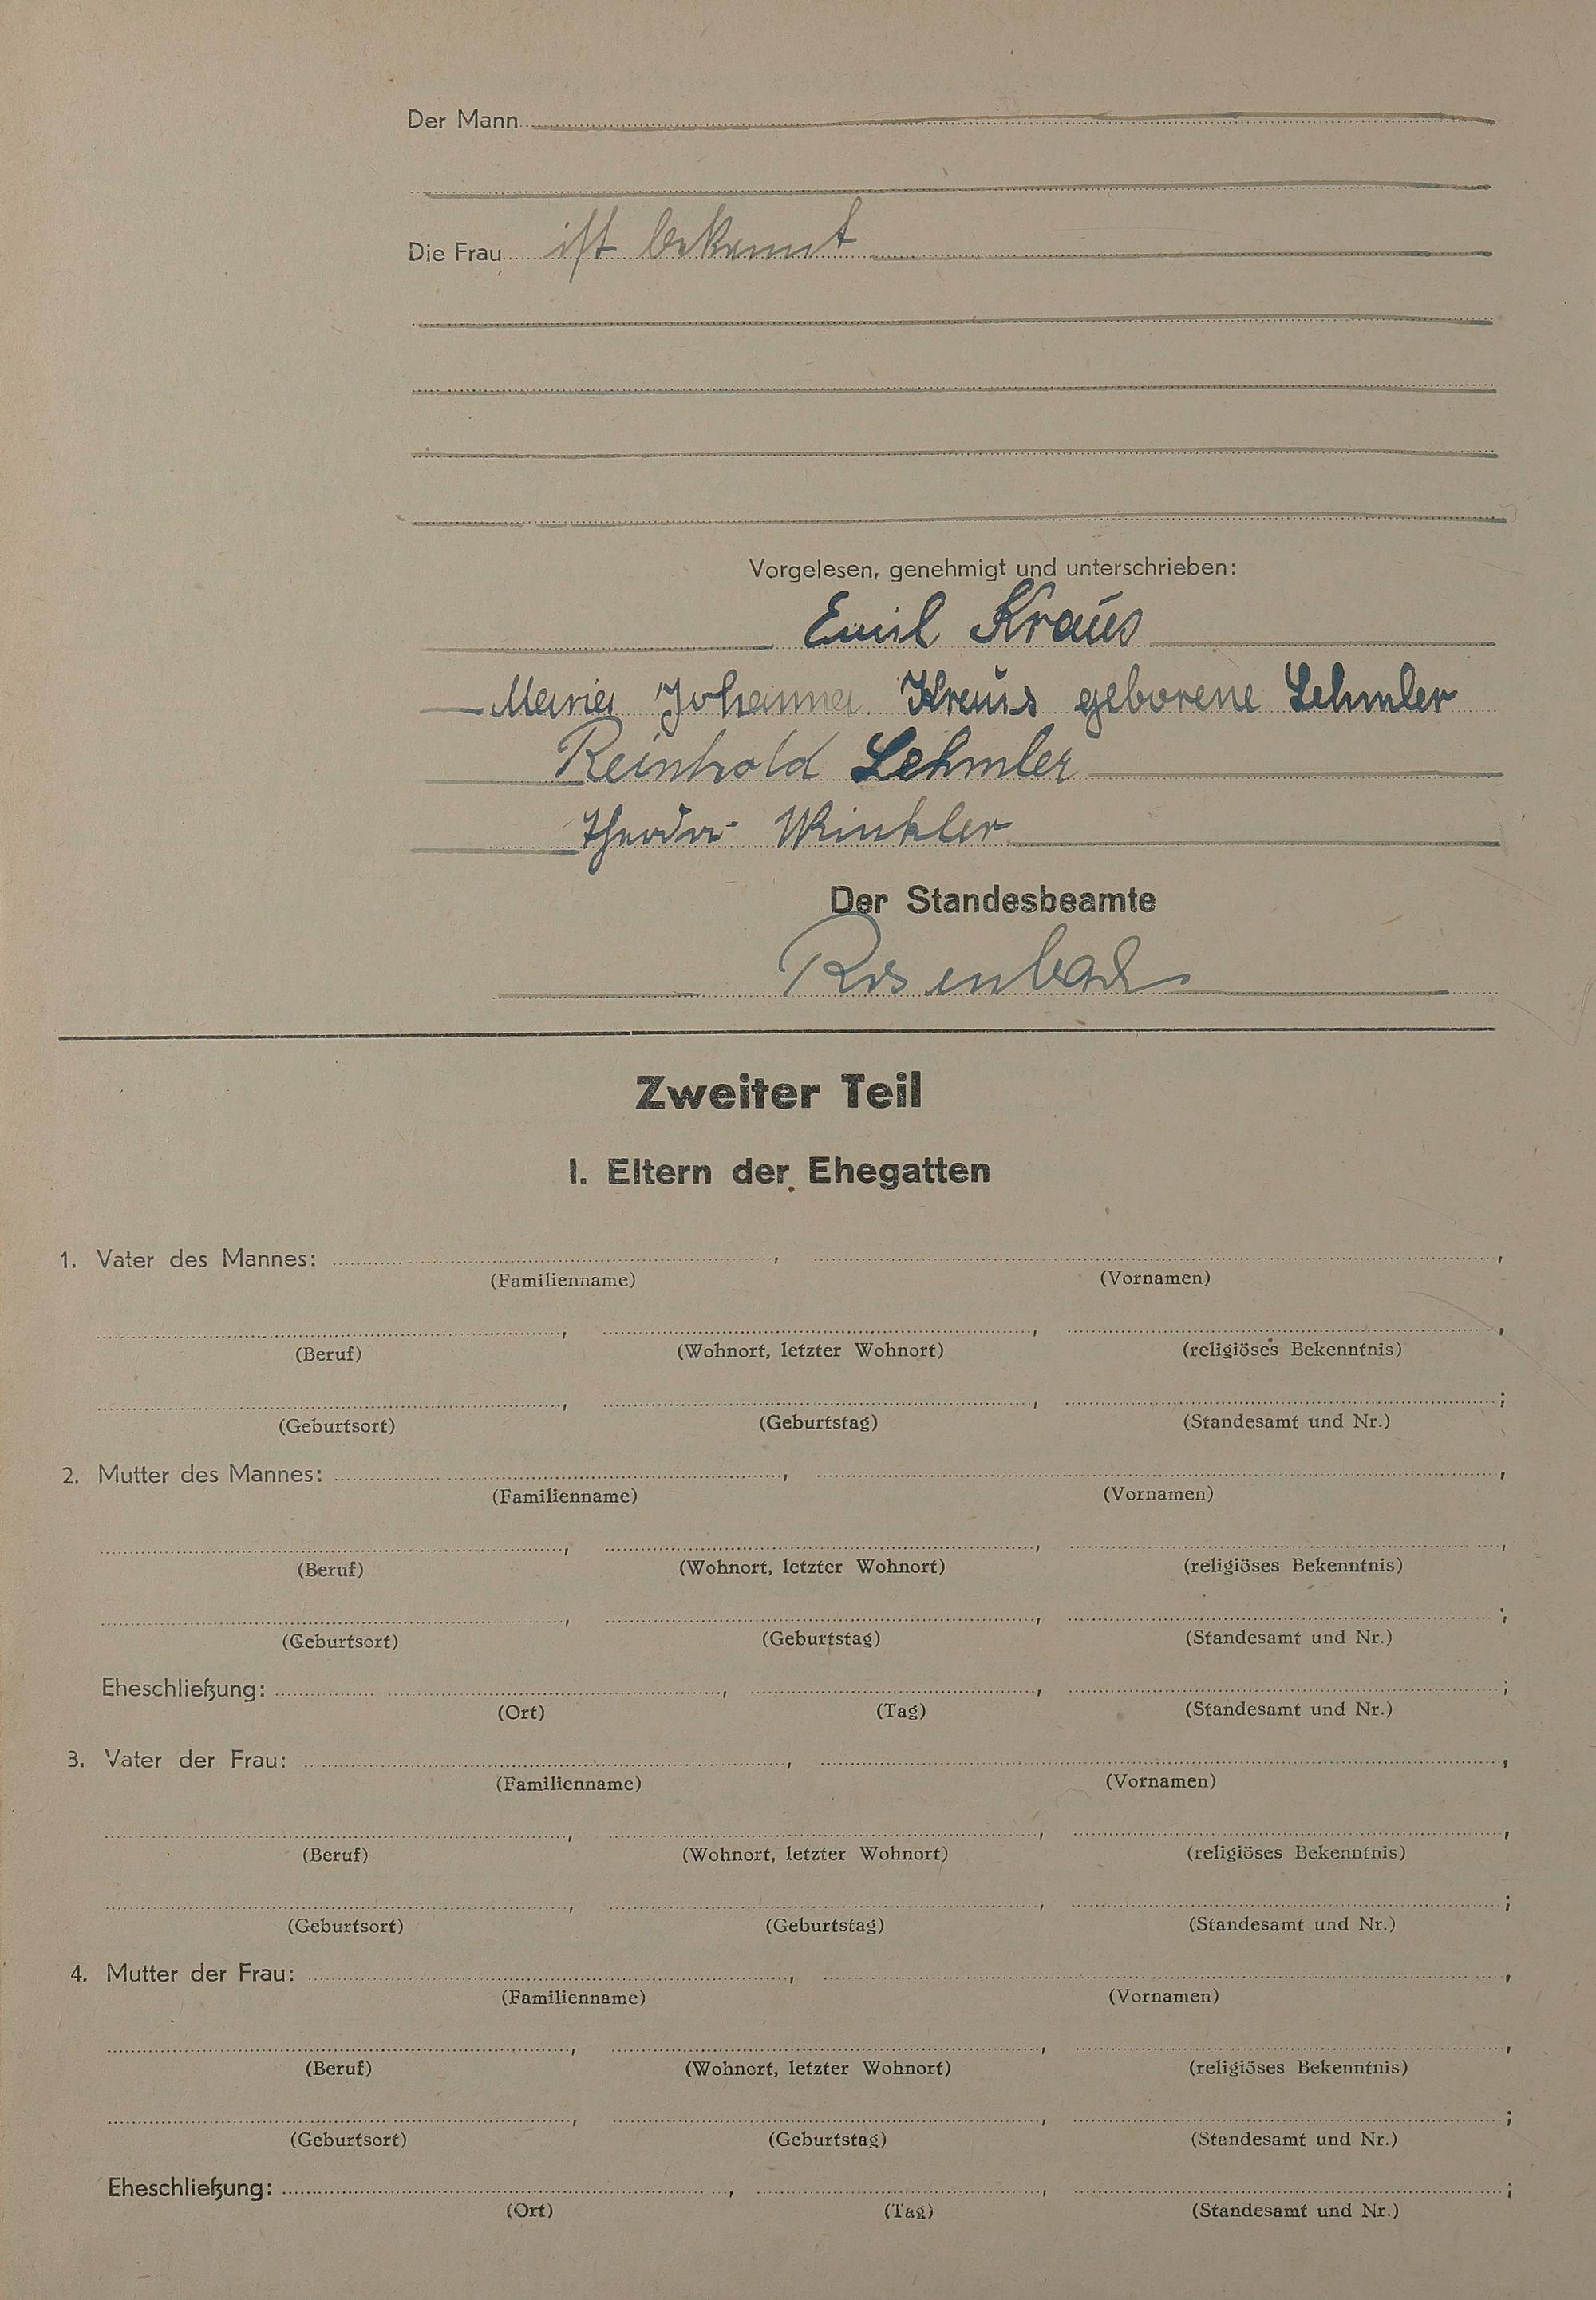 Der Mann
Die Frau ist bekannt
Vorgelesen, genehmigt und unterschrieben:
Emil Kraus
Maria Johanna Kraus geborene Lehmler
Reinhold Lehmler
Theodor Winkler
Der Standesbeamte
Rosenbach
Zweiter Teil
I. Eltern der Ehegatten
1. Vater des Mannes: , ,
(Familienname) (Vornamen)
(Beruf) (Wohnort, letzter Wohnort) (religiöses Bekenntnis)
(Geburtsort) (Geburtstag) (Standesamt und Nr.)
2. Mutter des Mannes: , ,
(Familienname) (Vornamen)
(Beruf) (Wohnort, letzter Wohnort) (religiöses Bekenntnis)
(Geburtsort) (Geburtstag) (Standesamt und Nr.)
Eheschließung: , , ;
(Ort) (Tag) (Standesamt und Nr.)
3. Vater der Frau: , ,
(Familienname) (Vornamen)
(Beruf) (Wohnort, letzter Wohnort) (religiöses Bekenntnis)
(Geburtsort) (Geburtstag) (Standesamt und Nr.)
4. Mutter der Frau: , ,
(Familienname) (Vornamen)
(Beruf) (Wohnort, letzter Wohnort) (religiöses Bekenntnis)
(Geburtsort) (Geburtstag) (Standesamt und Nr.)
Eheschließung: , , ;
(Ort) (Tag) (Standesamt und Nr.)